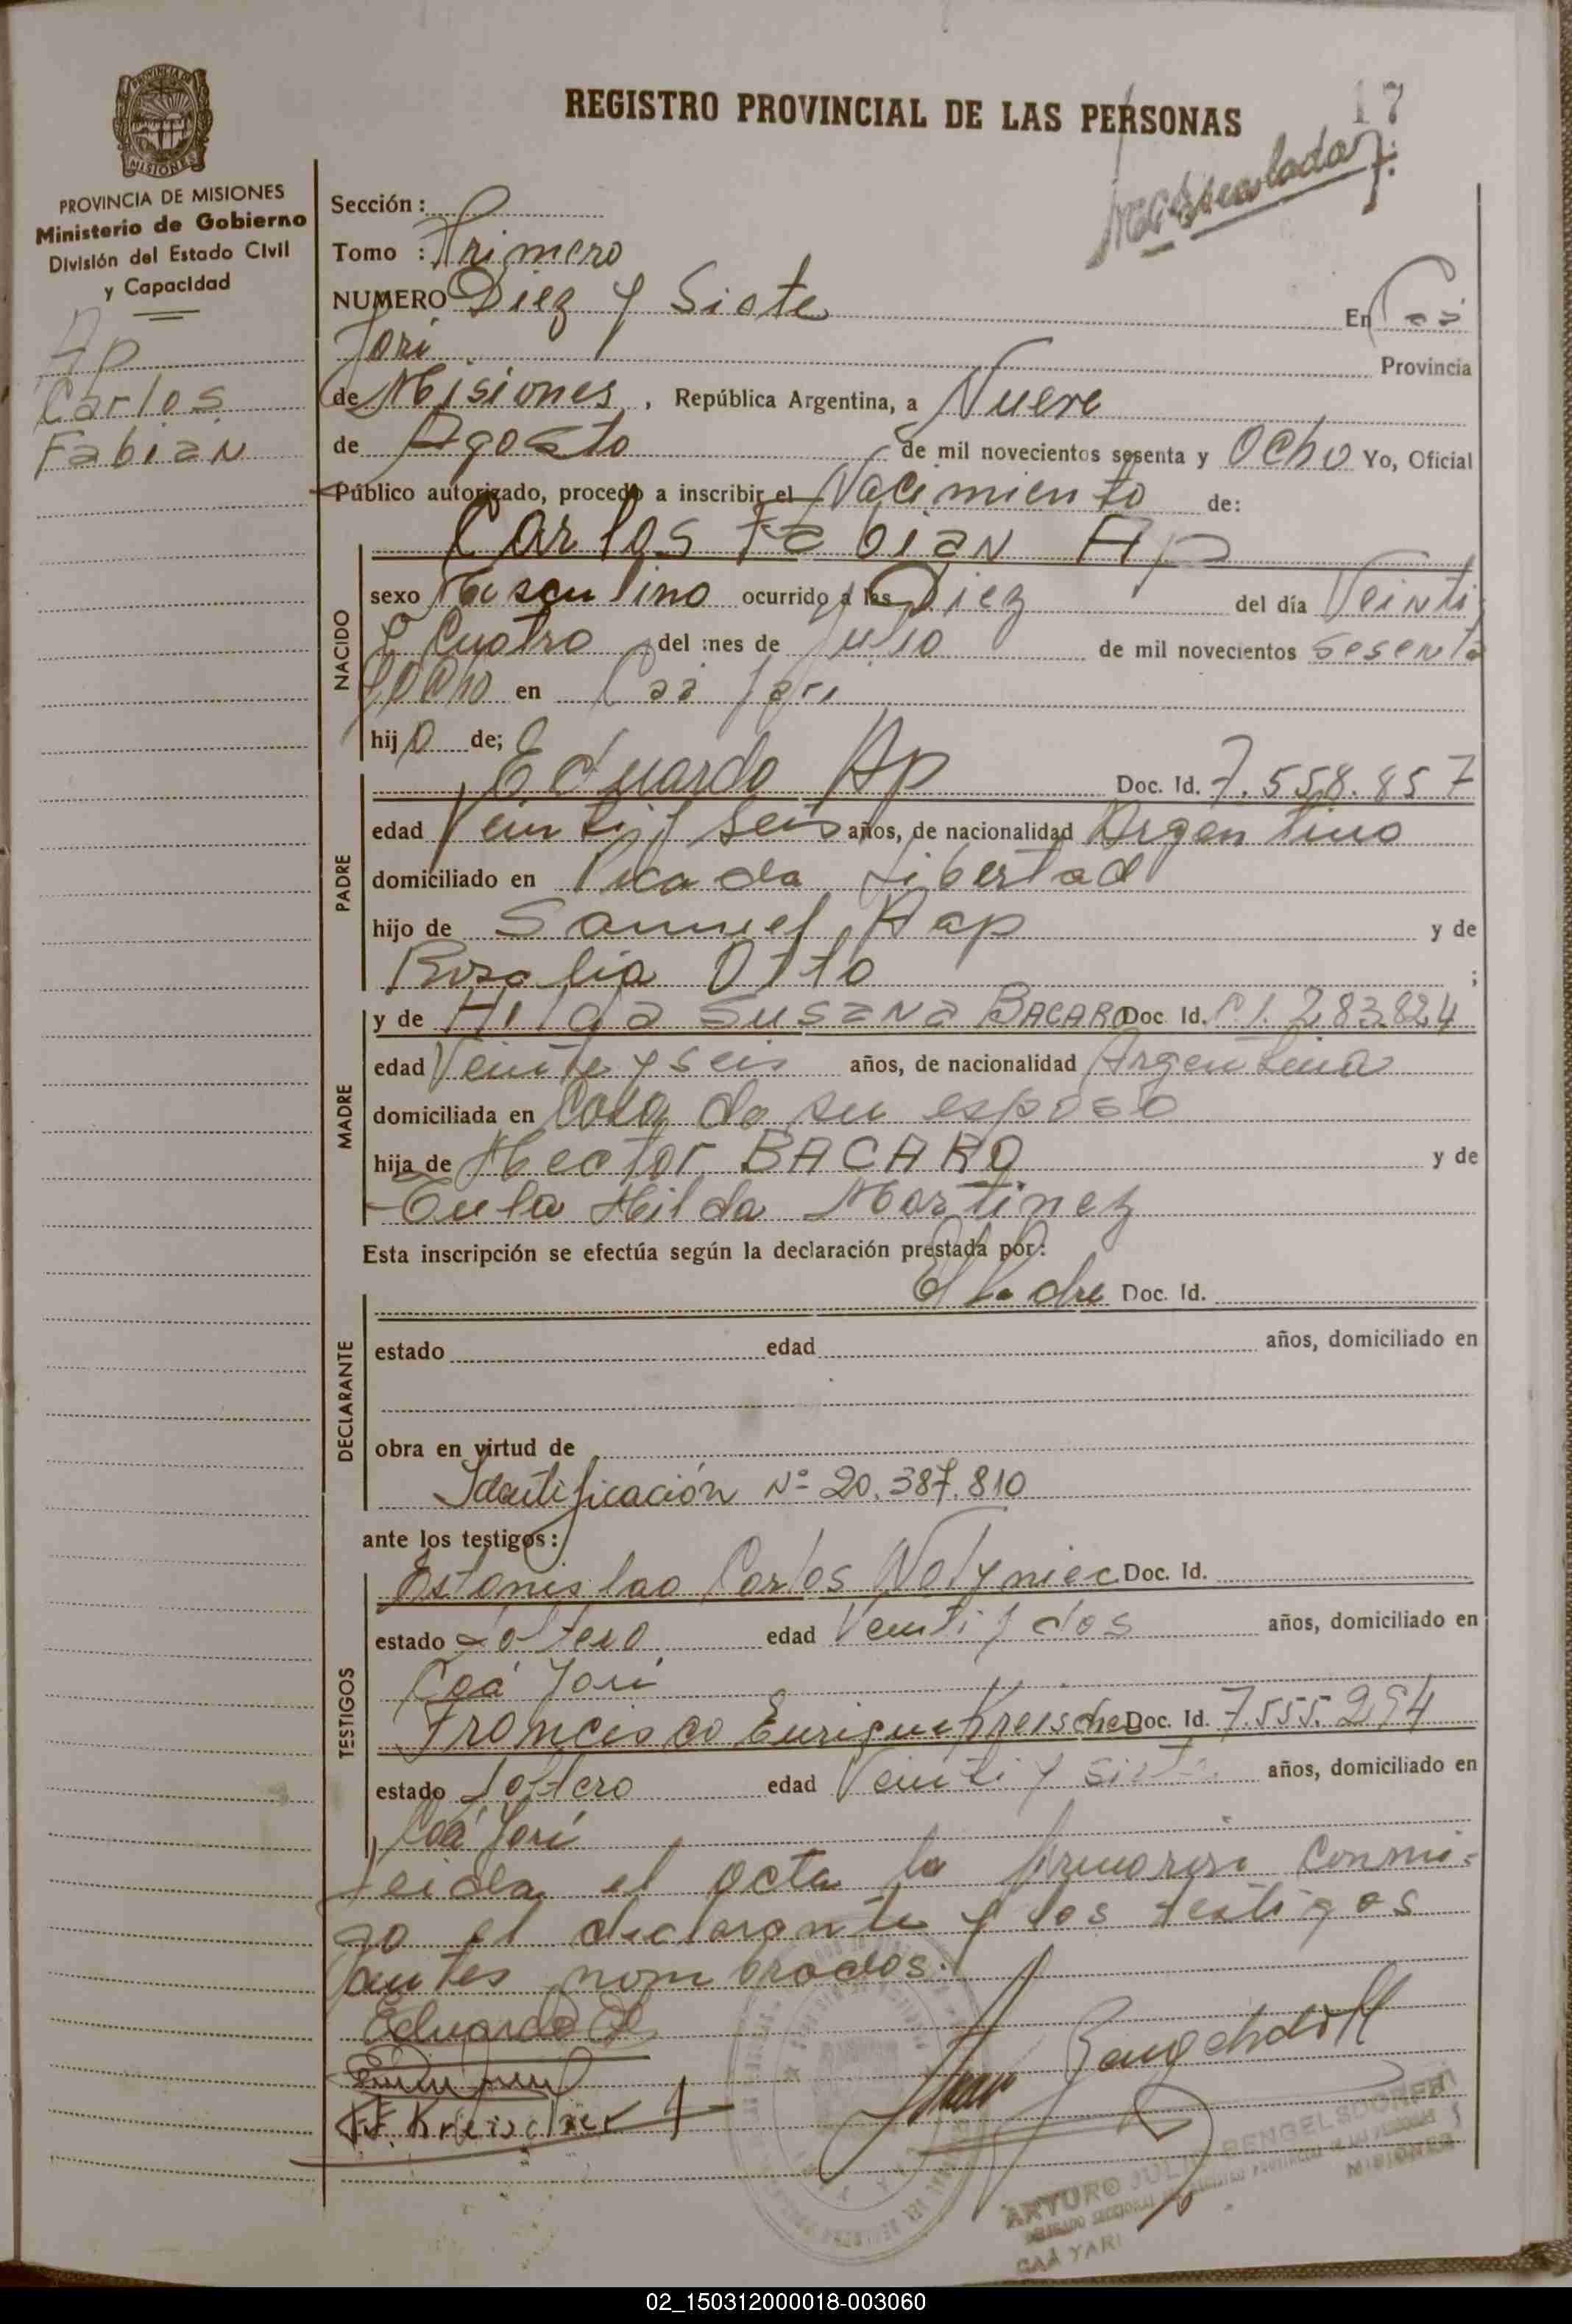 REGISTRO PROVINCIAL DE LAS PERSONAS
17
PROVINCIA DE MISIONES
PROVINCIA DE MISIONES
Ministerio de Gobierno
División del Estado Civil
y Capacidad
Ap
Carlos
Fabian
Sección :
Tomo : Primero
NUMERO Diez y Siete En Caá
Yarí Provincia
de Misiones, República Argentina, a Nueve
de Agosto de mil novecientos sesenta y Ocho Yo, Oficial
Público autorizado, procedo a inscribir el Nacimiento de:
Carlos Fabian Ap
NACIDO
sexo Masculino ocurrido a las Diez del día Veinti
y Cuatro del mes de Julio de mil novecientos sesenta
y Ocho en Caá Yari
hijo de;
PADRE
Eduardo Ap Doc. Id. 7.558.857
edad Veinti y Seis años, de nacionalidad Argentino
domiciliado en Picada Libertad
hijo de Samuel Aap y de
Rosalia Otto ;
MADRE
y de Hilda Susana BACARO Doc. Id. C.I. 283.824
edad Veinte y seis años, de nacionalidad Argentina
domiciliada en Casa de su esposo
hija de Hector BACARO y de
Hilda Martinez
Esta inscripción se efectúa según la declaración prestada por:
DECLARANTE
El Padre Doc. Id.
estado edad años, domiciliado en
obra en virtud de
Identificación Nº 20.387.810
ante los testigos:
TESTIGOS
Estanislao Carlos Wolyniec Doc. Id.
estado Soltero edad Veinti y dos años, domiciliado en
Caá Yarí
Francisco Enrique Kreischer Doc. Id. 7.555.294
estado Soltero edad Veinti y siete años, domiciliado en
Caá Yarí
Leida el acta la firmaron conmi-
go el declarante y los testigos
antes nombrados.
Eduardo
F. E. Kreischer
ARTURO JULIO BENGELSDORFF
MISIONES
CAA YARI
02_150312000018-003060